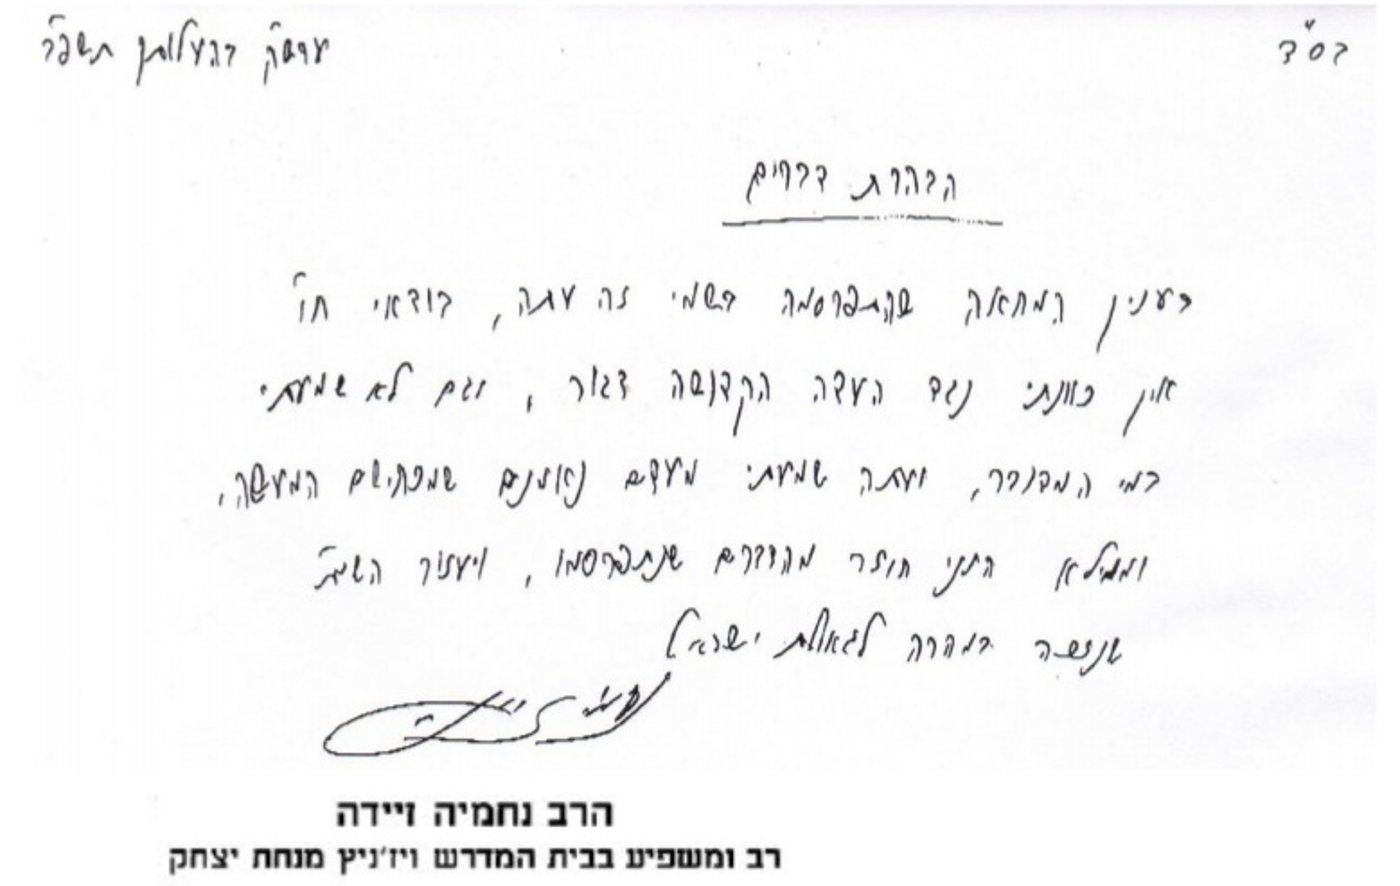 בס"ד
ערש"ק בהעלותך תשפ"ב
הבהרת דברים
בענין המחאה שהתפרסמה בשמי זה עתה, בודאי חו"
אין כוונתי נגד העדה הקדושה דגור, וגם לא שמעתי
במי המדובר, ועתה שמעתי מעדים נאמנים שמכחישים המעשה,
וממילא הנני חוזר מהדברים שנתפרסמו, ויעזור השי"ת
שנזכה במהרה לגאולת ישראל
הרב נחמיה זיידה
רב ומשפיע בבית המדרש ויז'ניץ מנחת יצחק